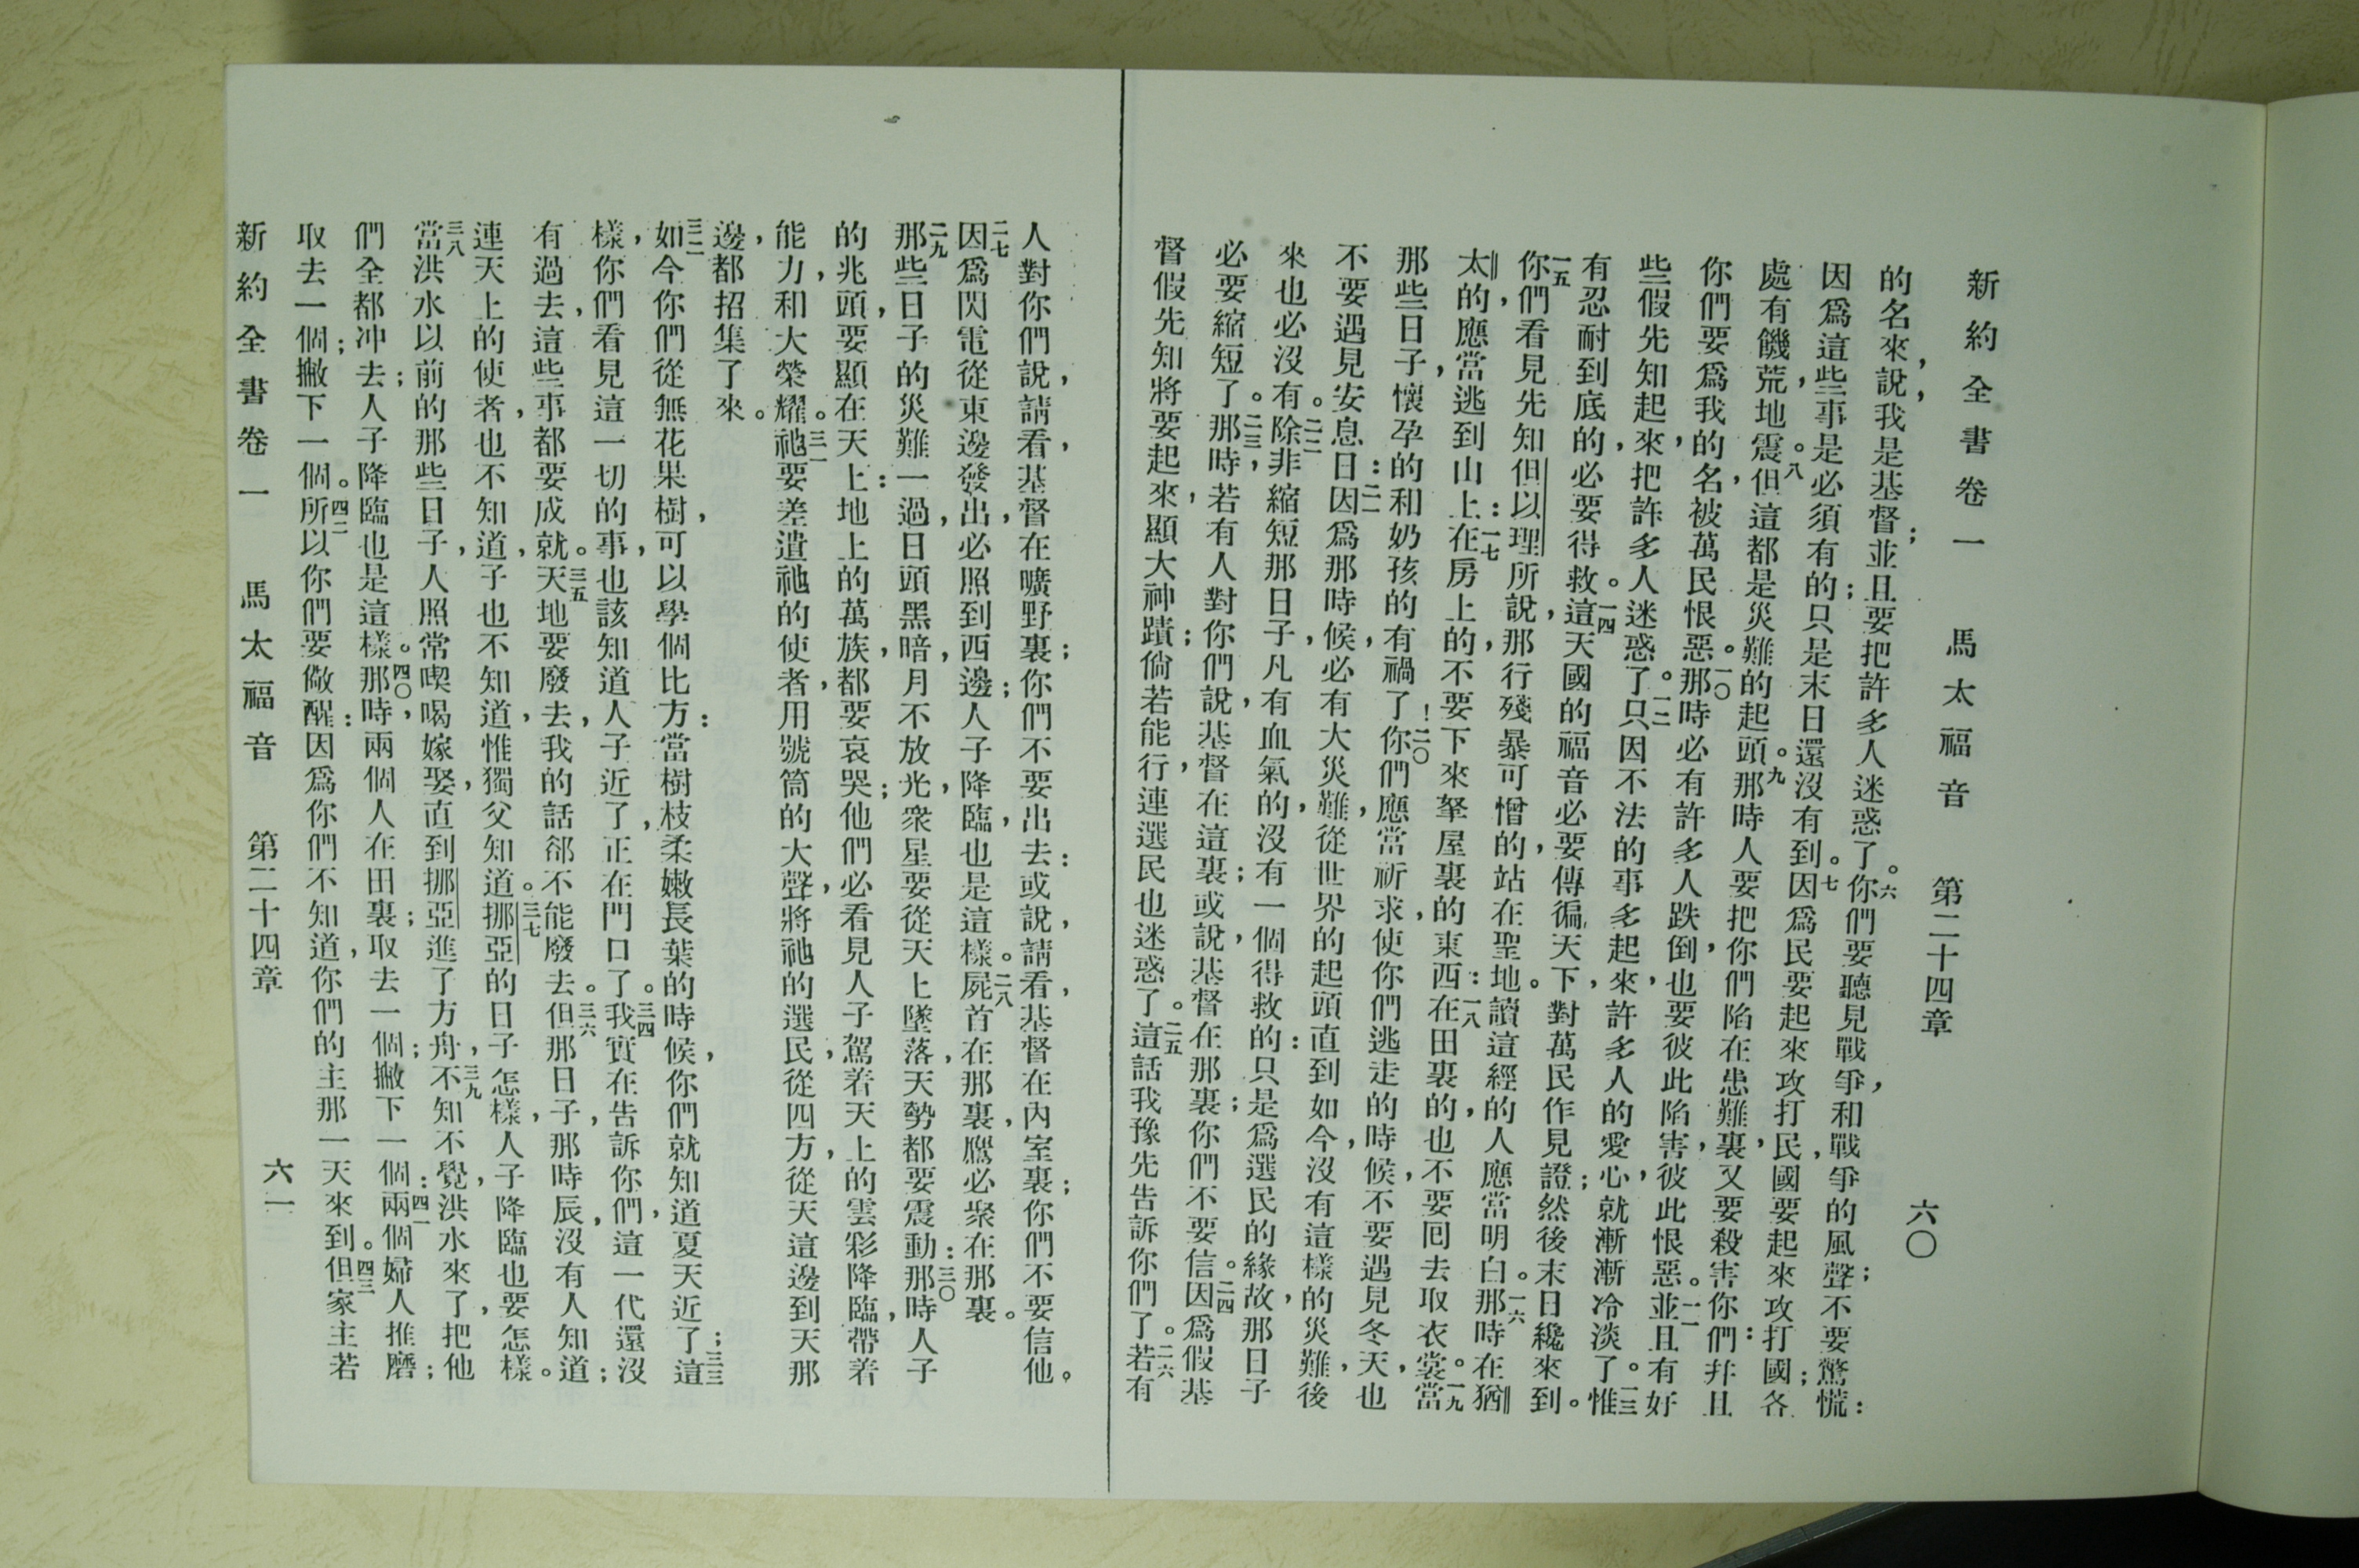 新約全書卷一　馬太福音　第二十四章　六〇
的名來，說，我是基督；並且要把許多人迷惑了。六你們要聽見戰爭，和戰爭的風聲；不要驚慌：
因爲這些事是必須有的；只是末日還沒有到。七因爲民要起來攻打民，國要起來攻打國；各
處有饑荒，地震。八但這都是災難的起頭。九那時人要把你們陷在患難裏，又要殺害你們：幷且
你們要爲我的名，被萬民恨惡。一〇那時必有許多人跌倒，也要彼此陷害，彼此恨惡。一一並且有好
些假先知起來，把許多人迷惑了。一二只因不法的事多起來，許多人的愛心，就漸漸冷淡了。一三惟
有忍耐到底的，必要得救。一四這天國的福音必要傳徧天下，對萬民作見證；然後末日纔來到。
一五你們看見先知但以理所說，那行殘暴可憎的，站在聖地。讀這經的人應當明白。一六那時在猶
太的，應當逃到山上：一七在房上的，不要下來拏屋裏的東西：一八在田裏的，也不要囘去取衣裳。一九當
那些日子，懷孕的和奶孩的有禍了！二〇你們應當祈求，使你們逃走的時候，不要遇見冬天，也
不要遇見安息日：二一因爲那時候，必有大災難，從世界的起頭直到如今，沒有這樣的災難，後
來也必沒有。二二除非縮短那日子，凡有血氣的，沒有一個得救的：只是爲選民的緣故，那日子
必要縮短了。二三那時，若有人對你們說，基督在這裏；或說，基督在那裏；你們不要信。二四因爲假基
督假先知將要起來，顯大神蹟；倘若能行，連選民也迷惑了。二五這話我豫先告訴你們了。二六若有
人對你們說，請看，基督在曠野裏；你們不要出去：或說，請看，基督在內室裏；你們不要信他。
二七因爲閃電從東邊發出，必照到西邊；人子降臨，也是這樣。二八屍首在那裏，鷹必聚在那裏。
二九那些日子的災難一過，日頭黑暗，月不放光，衆星要從天上墜落，天勢都要震動：三〇那時人子
的兆頭，要顯在天上：地上的萬族，都要哀哭；他們必看見人子駕着天上的雲彩降臨，帶着
能力，和大榮耀。三一祂要差遣祂的使者，用號筒的大聲，將祂的選民，從四方，從天這邊到天那
邊，都招集了來。
三二如今你們從無花果樹，可以學個比方：當樹枝柔嫩長葉的時候，你們就知道夏天近了；三三這
樣，你們看見這一切的事，也該知道人子近了，正在門口了。三四我實在告訴你們，這一代還沒
有過去，這些事都要成就。三五天地要廢去，我的話郤不能廢去。三六但那日子，那時辰，沒有人知道；
連天上的使者，也不知道，子也不知道，惟獨父知道。三七挪亞的日子怎樣，人子降臨也要怎樣。
三八當洪水以前的那些日子，人照常喫喝嫁娶，直到挪亞進了方舟，三九不知不覺，洪水來了，把他
們全都冲去；人子降臨也是這樣。四〇那時，兩個人在田裏；取去一個；撇下一個：四一兩個婦人推磨；
取去一個；撇下一個。四二所以你們要儆醒：因爲你們不知道，你們的主那一天來到。四三但家主若
新約全書卷一　馬太福音　第二十四章　六一